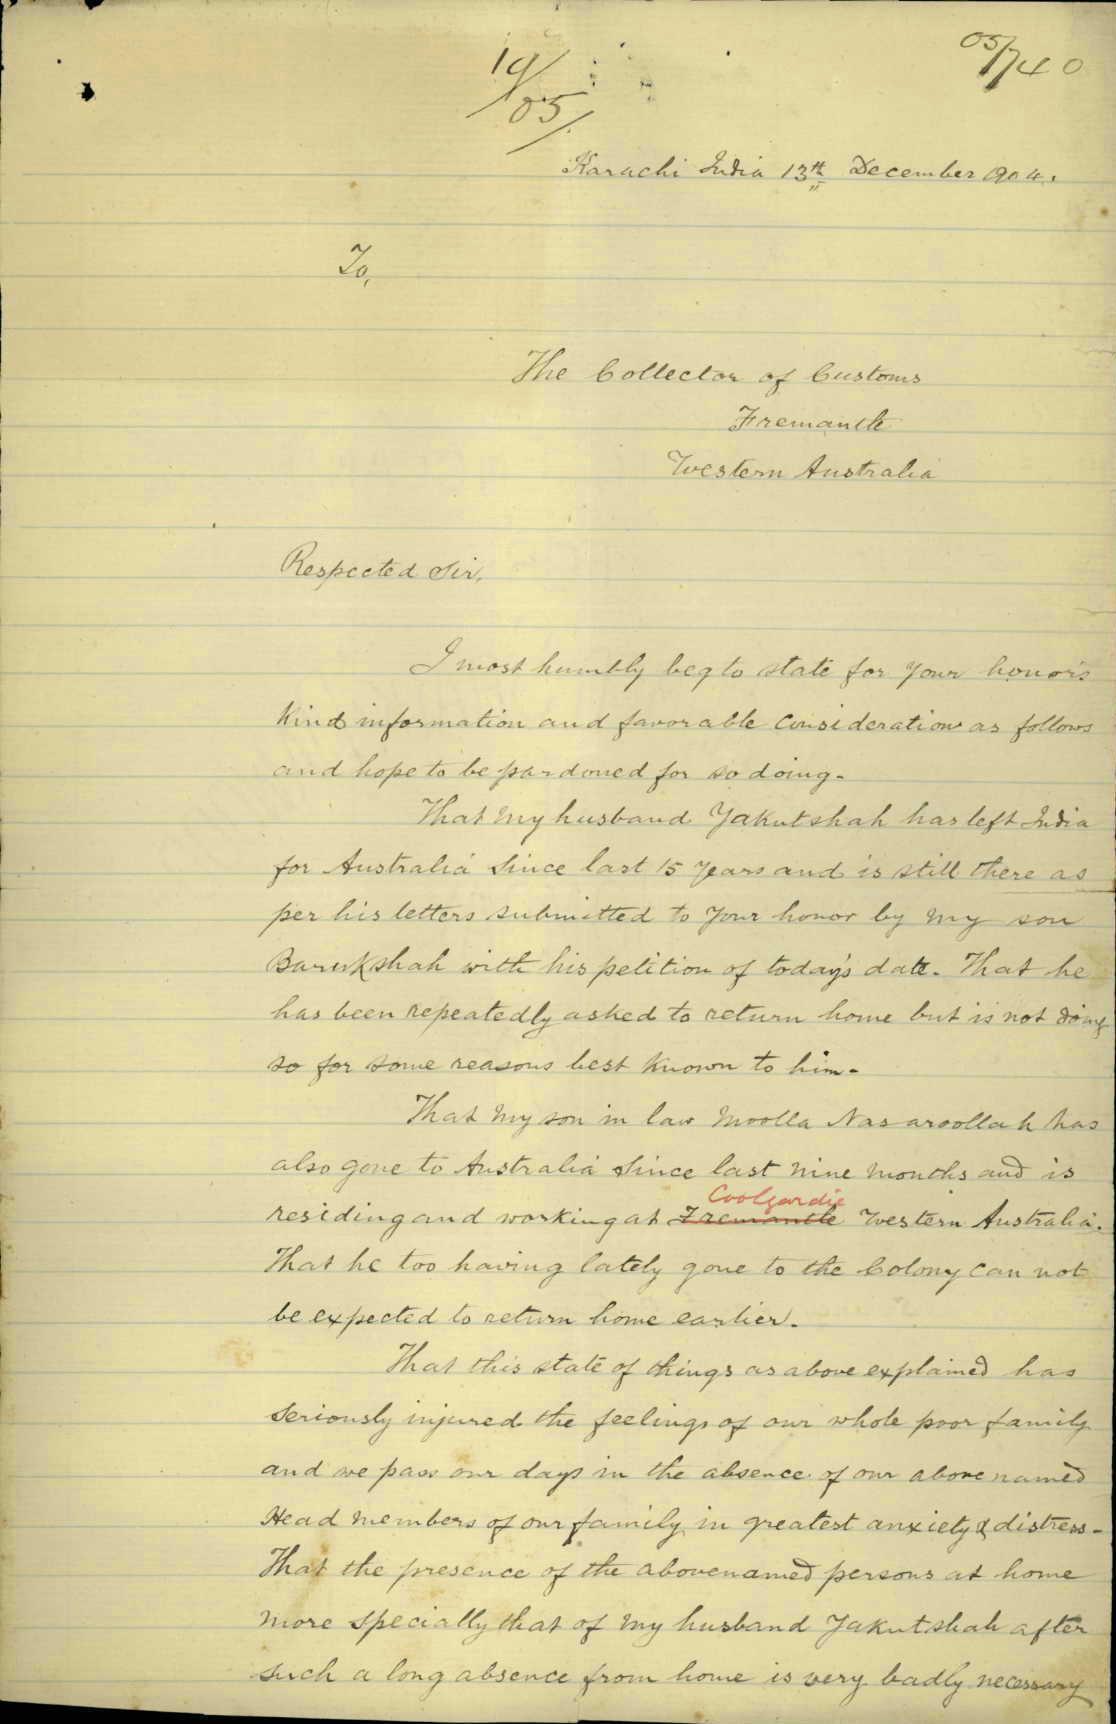 19/05
05/740
Karachi India 13th December 1904.
To,
The Collector of Customs
Fremantle
Western Australia
Respected Sir,
I most humbly beg to state for your honor's
kind information and favorable consideration as follows
and hope to be pardoned for so doing-
That my husband Yakutshah has left India
for Australia since last 15 years and is still there as
per his letters submitted to your honor by my son
Barukshah with his petition of today's date. That he
has been repeatedly asked to return home but is not doing
so for some reasons best known to him-
That my son in law Moolla Nasaroollah has
also gone to Australia since last nine months and is
Coolgardie
residing and working at Fremantle Western Australia.
That he too having lately gone to the Colony can not
be expected to return home earlier.
That this state of things as above explained has
seriously injured the feelings of our whole poor family
and we pass our days in the absence of our above named
Head members of our family in greatest anxiety & distress-
That the presence of the abovenamed persons at home
more specially that of my husband Yakutshah after
such a long absence from home is very badly necessary